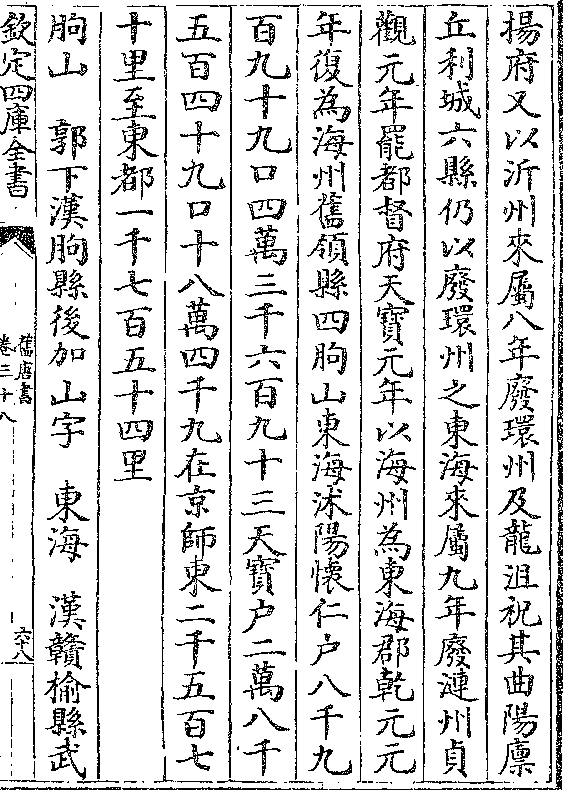 揚府又以沂州來屬八年廢環州及龍沮祝其曲陽廩
丘利城六縣仍以廢環州之東海來屬九年廢漣州貞
觀元年罷都督府天寶元年以海州為東海郡乾元元
年復為海州舊領縣四朐山東海沭陽懷仁户八千九
百九十九口四萬三千六百九十三天寶户二萬八千
五百四十九口十八萬四千九在京師東二千五百七
十里至東都一千七百五十四里
朐山 郭下漢朐縣後加山字 東海 漢贛榆縣武
欽定四庫全書
舊唐書
卷三十八
六十八